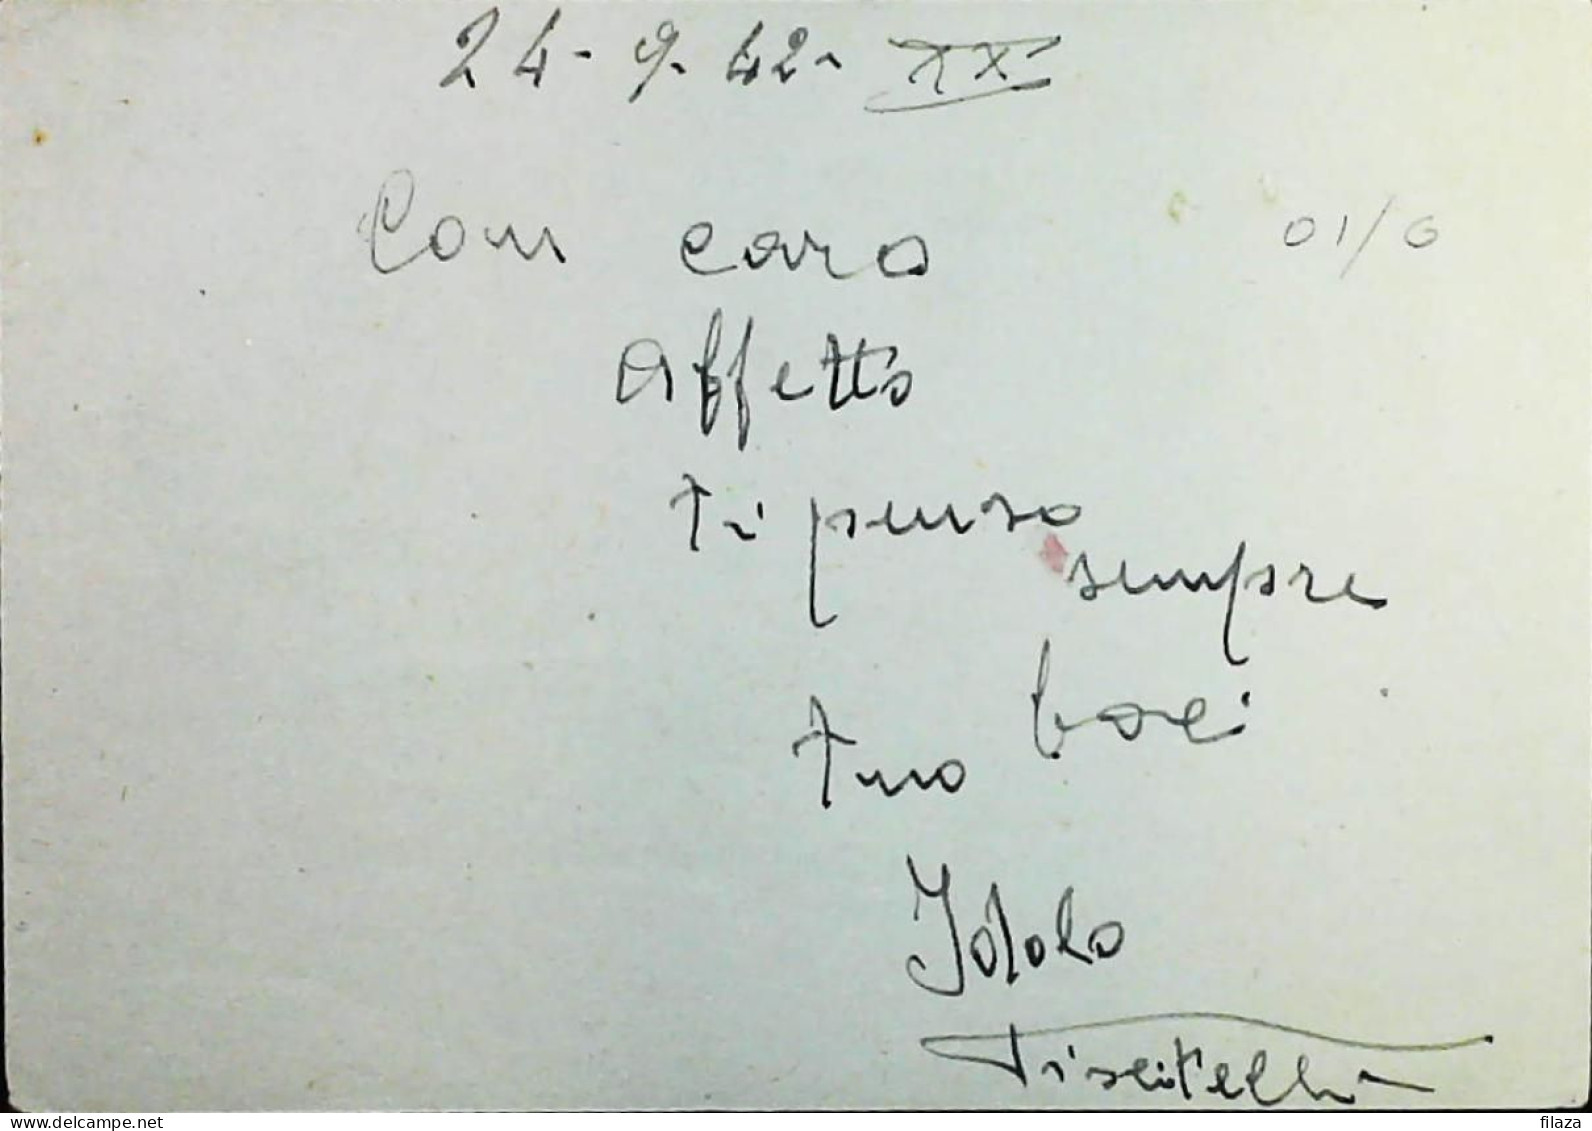 24-9-42- XX
Con caro
01/6
affetto
ti penso
sempre
baci
tuo
delcampe.net
filaza